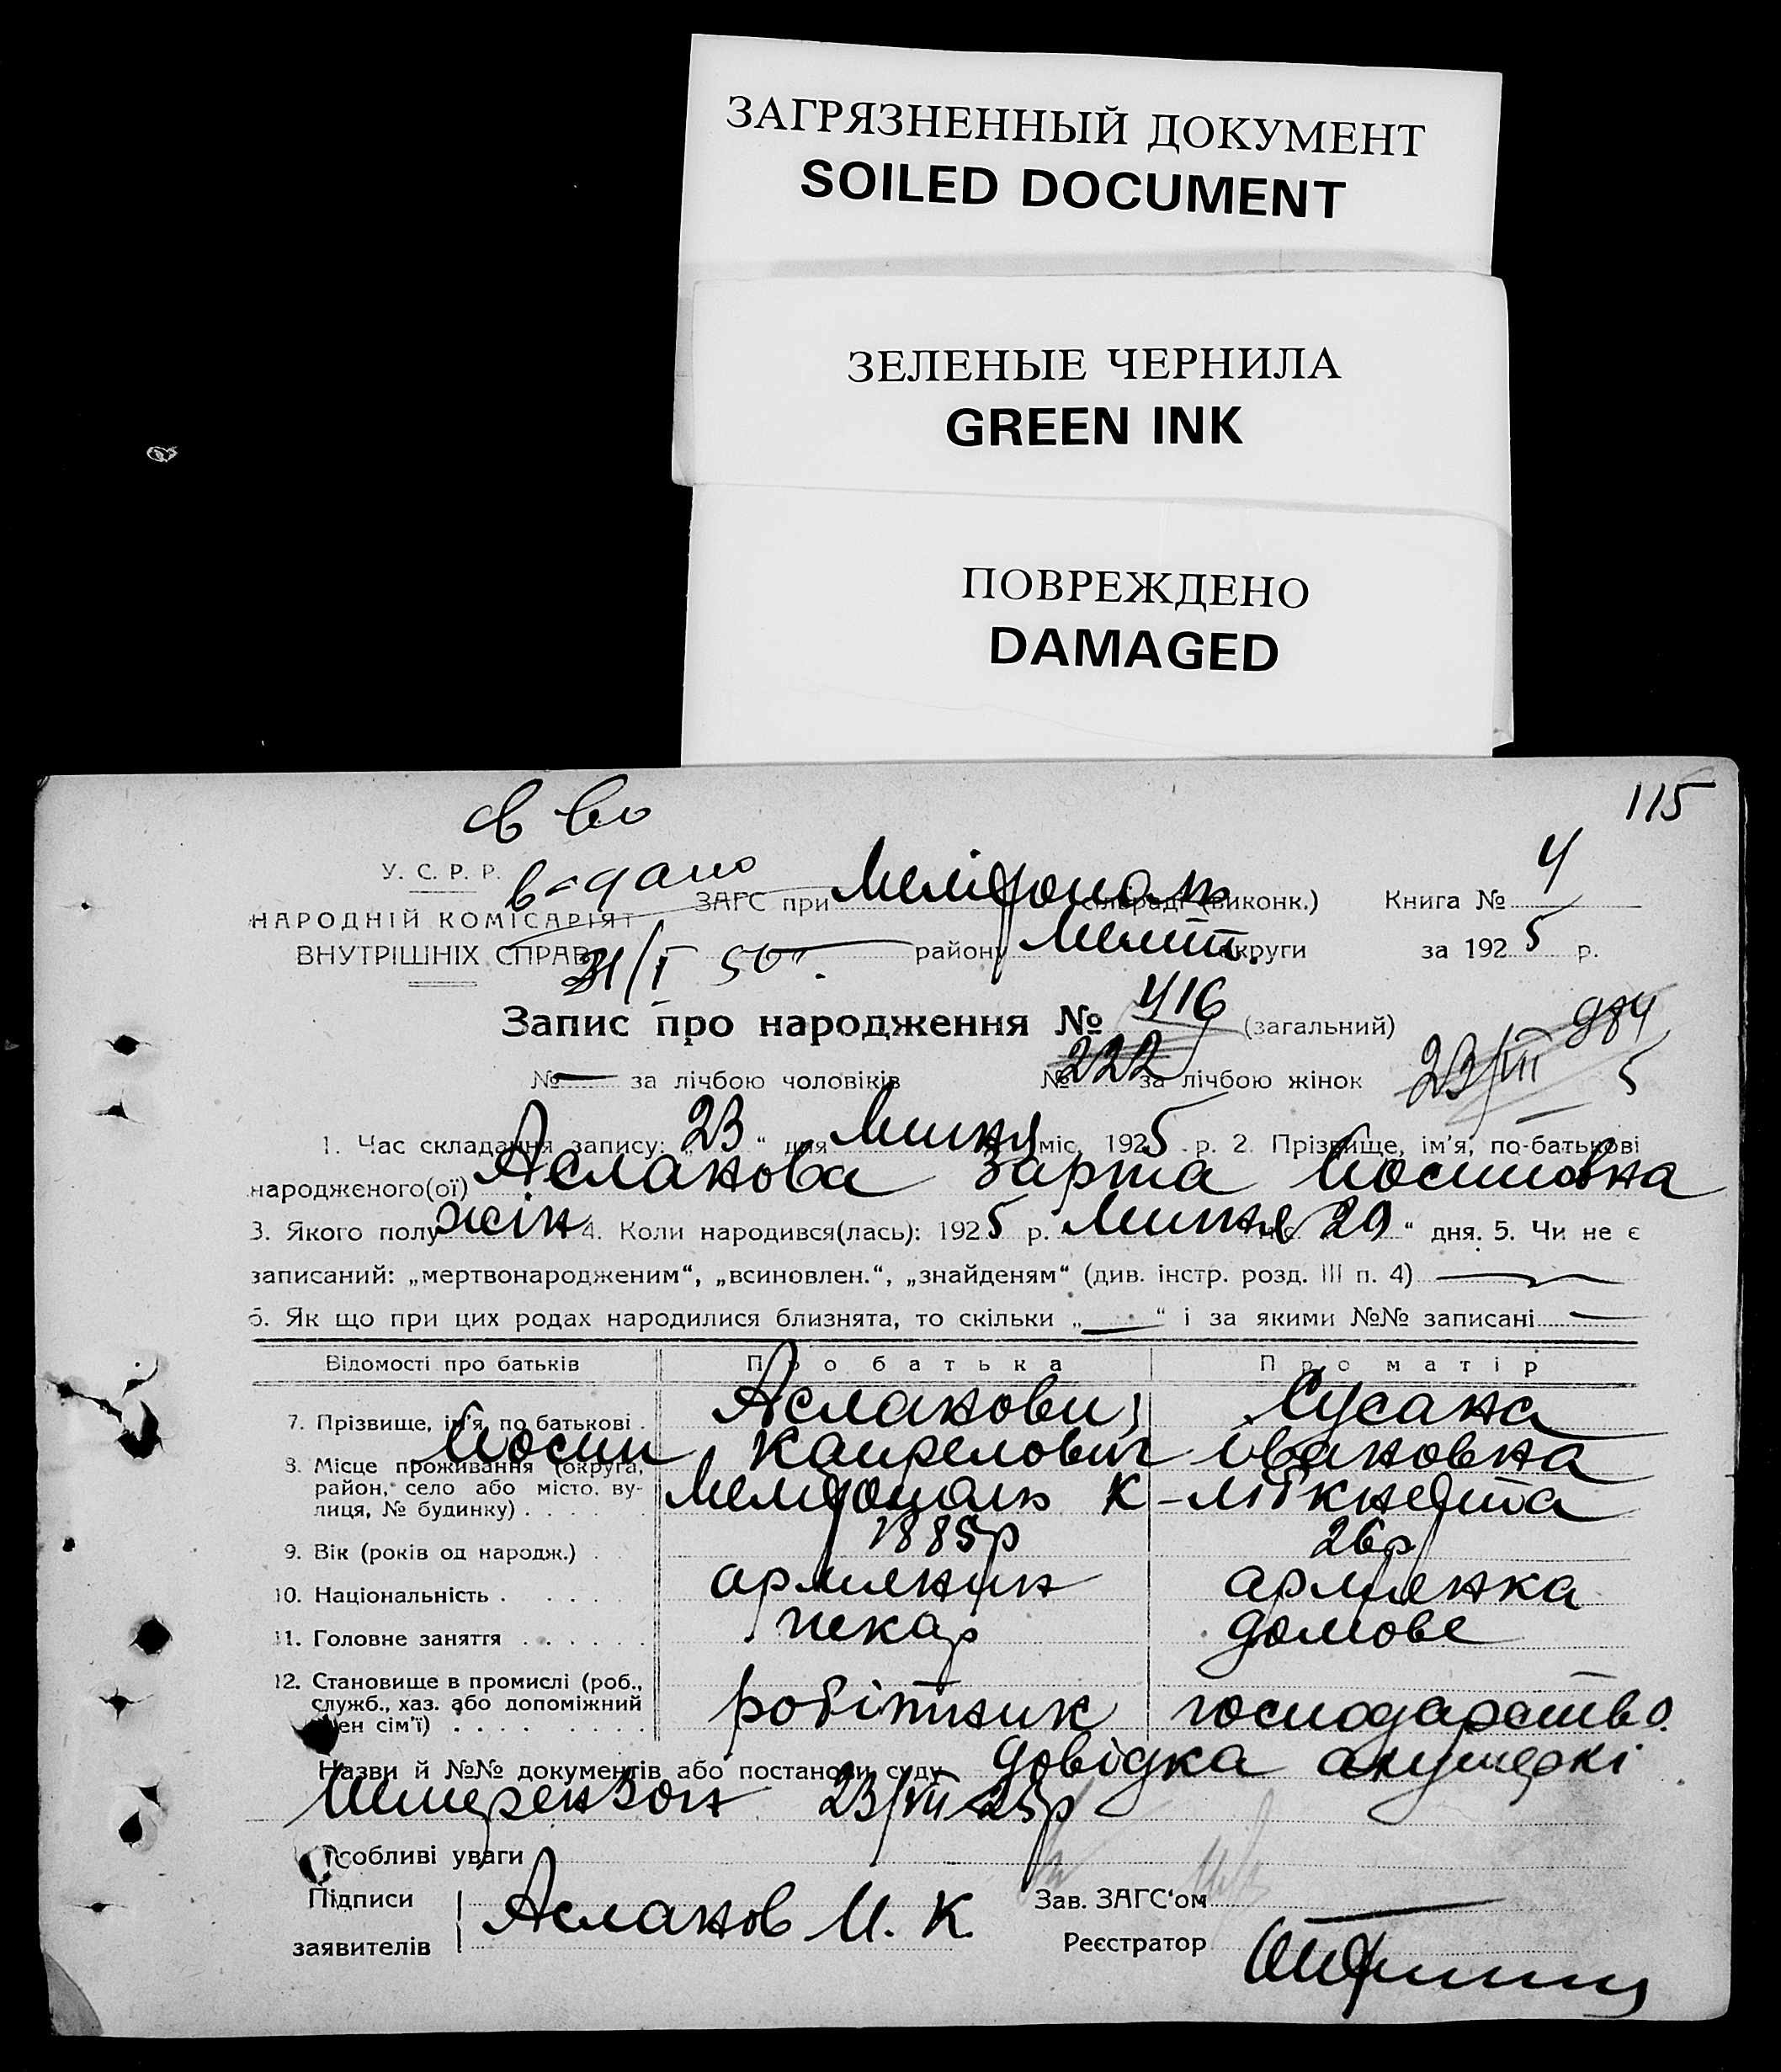 ЗАГРЯЗНЕННЫЙ ДОКУМЕНТ
SOILED DOCUMENT
ЗЕЛЕНЫЕ ЧЕРНИЛА
GREEN INK
ПОВРЕЖДЕНО
DAMAGED
115
св во
У. С. Р. Р. ЗАГС при Меліт (виконк.) Книга № 4
НАРОДНІЙ КОМІСАРІЯТ
ВНУТРІШНІХ СПРАВ 31/І 50 району Меліт. округи за 1925 р.
Запис про народження № 416 (загальний) 984
№ — за лічбою чоловіків № 222 за лічбою жінок 23/VII 5
1. Час складання запису: „23“ дня Липня міс. 1925 р. 2. Прізвище, ім'я, по-батькові
народженого(ої) Асланова Зарта Йосиповна
3. Якого полу жін 4. Коли народився(лась): 1925 р. Липня міс. 20 “ дня. 5. Чи не є
записаний: „мертвонародженим“, „всиновлен.“, „знайденям“ (див. інстр. розд. III п. 4) —
6. Як що при цих родах народилися близнята, то скільки „ — “ і за якими №№ записані —
Відомості про батьків Про батька Про матір
7. Прізвище, ім'я, по батькові . Асланови, Сусана
Йосип Каирелович Ивановна
8. Місце проживання (округа, район, село або місто, вулиця, № будинку) . . . . .
9. Вік (років од народж.) . 1885р 26р
10. Національність . . . . . армянин армянка
11. Головне заняття . . . . . . пекар домове
12. Становище в промислі (роб., служб., хаз. або допоміжний член сім'ї) . . . . робітник господарство.
Назви й №№ документів або постанови суду довідка акушеркі
23/VII 25р
Особливі уваги
Підписи Асланов И. К. Зав. ЗАГС'ом —
заявителів Реєстратор